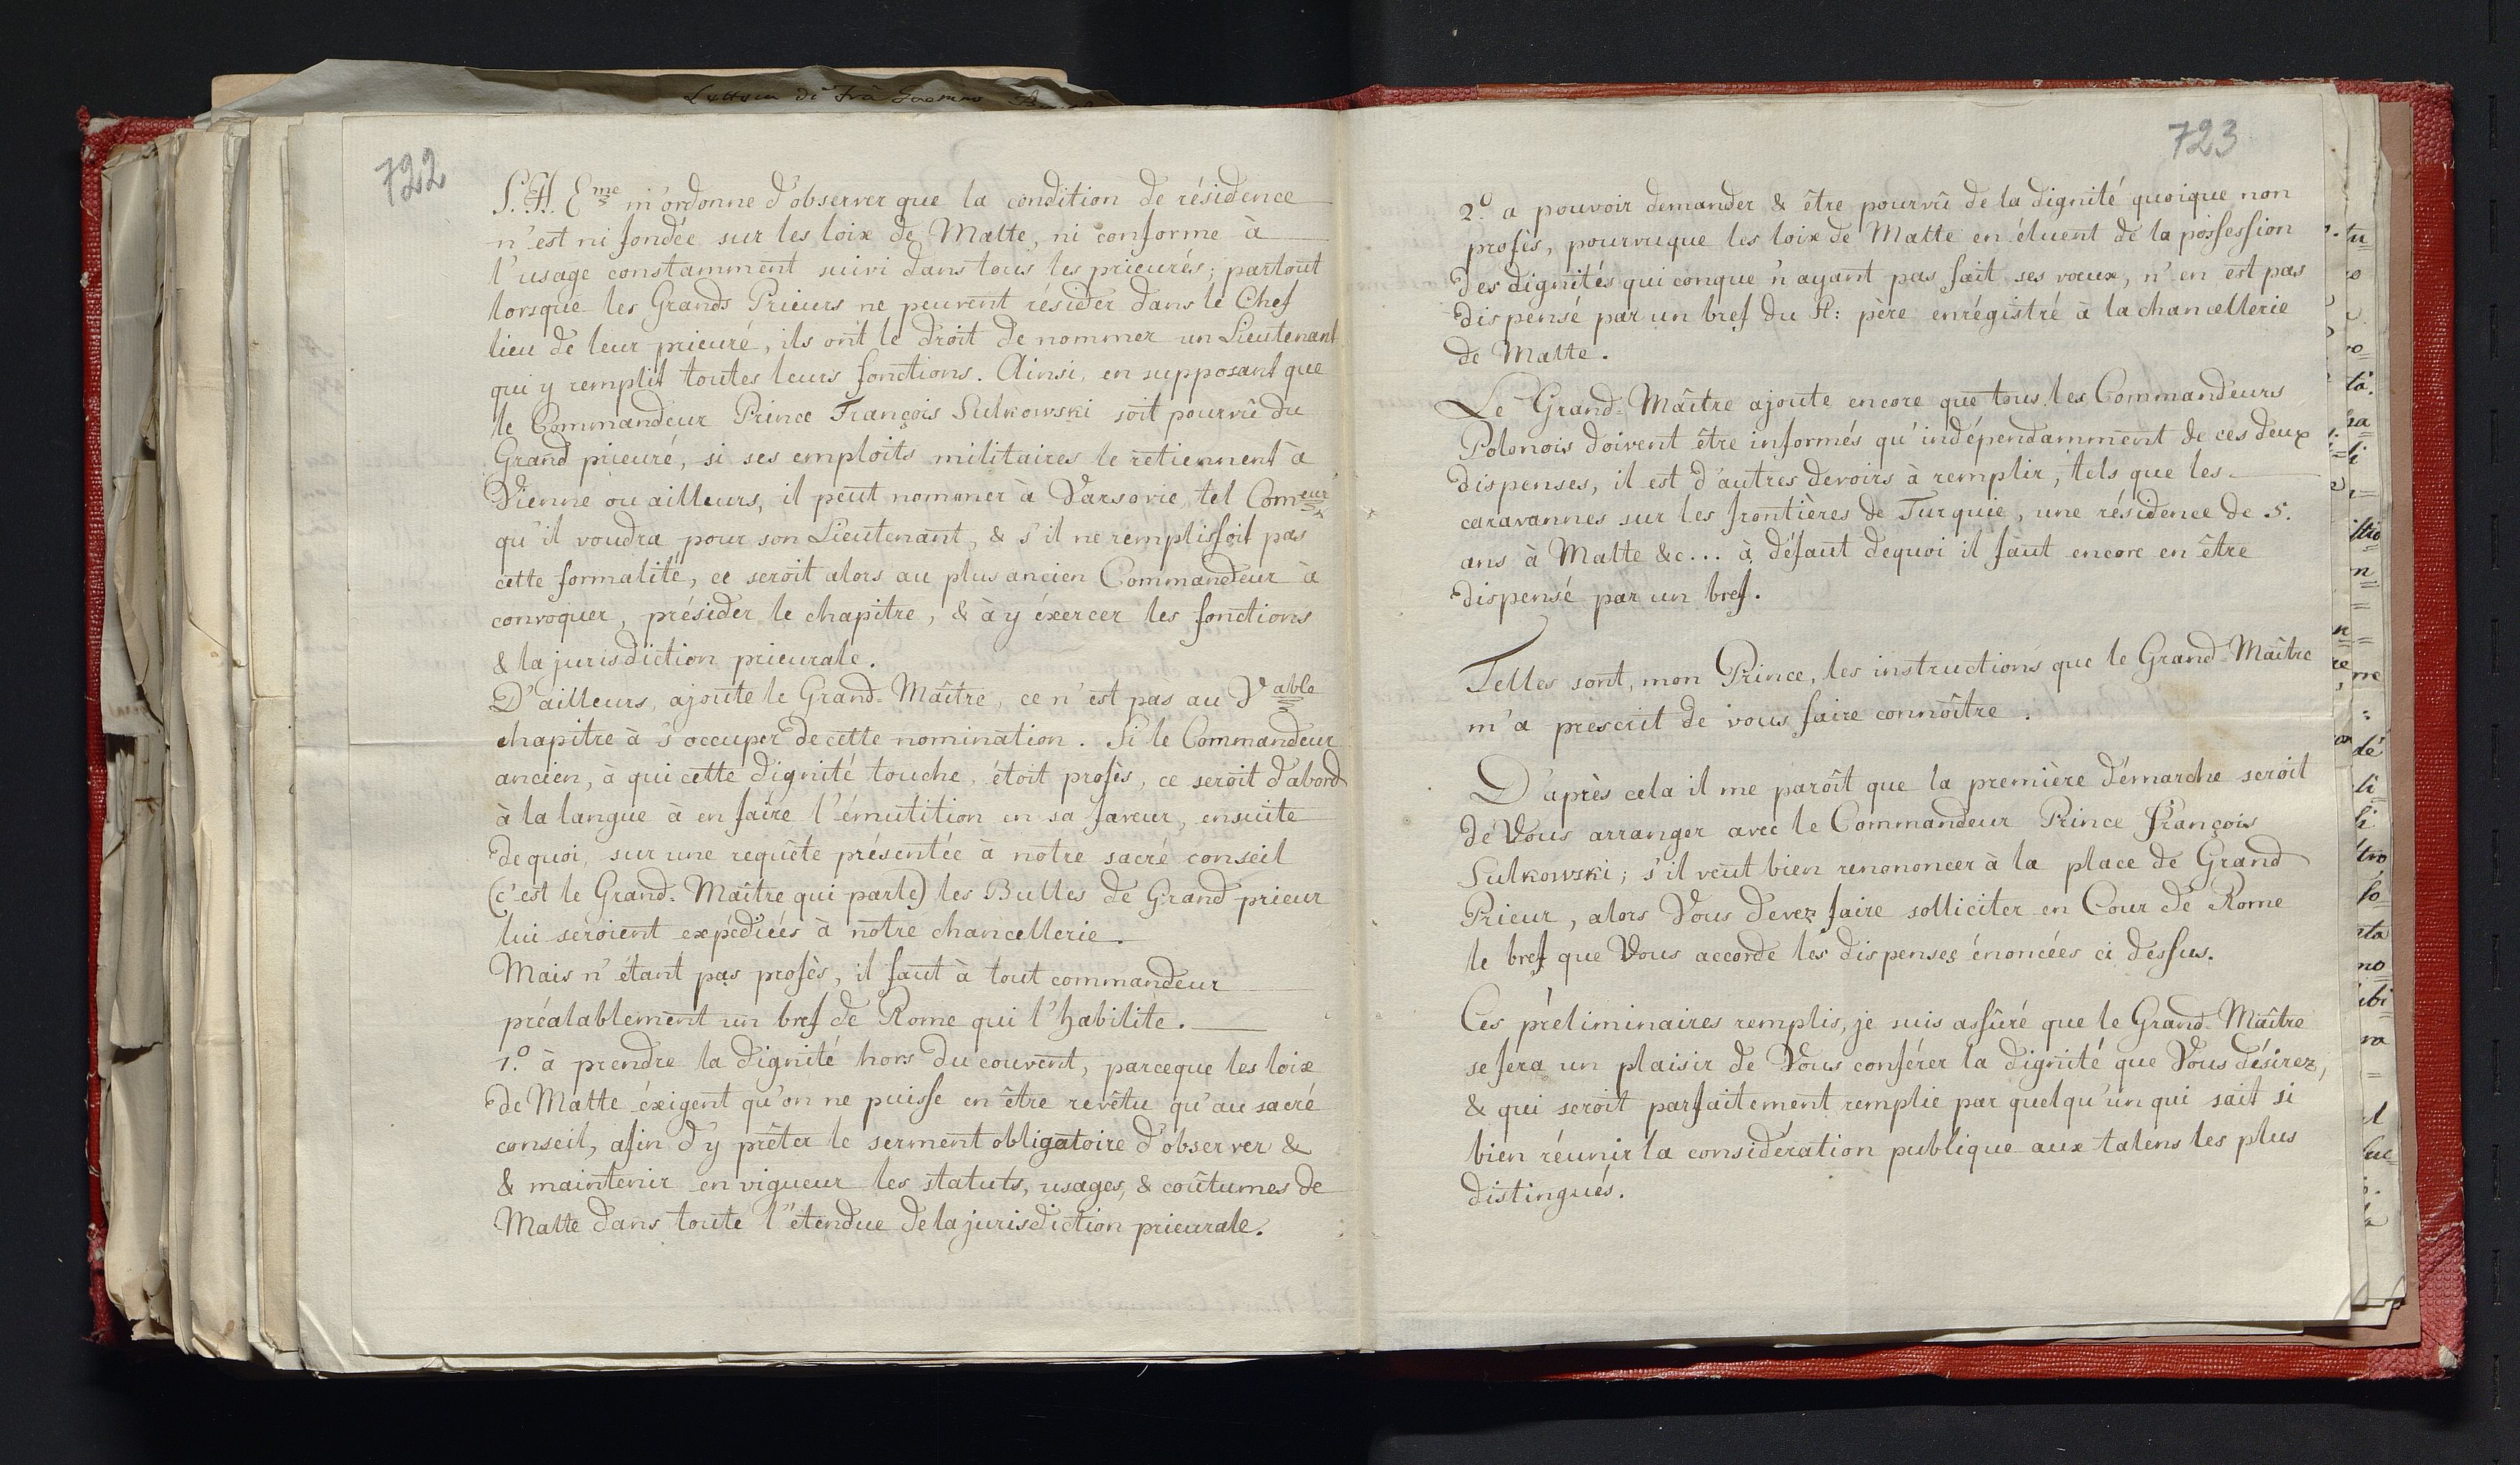 722
S. A. Eme m'ordonne d'observer que la condition de résidence
n'est ni fondée sur les loix de Malte, ni conforme à
l'usage constamment suivi dans tous les prieurés; partout
lorsque les Grands Prieurs ne peuvent résider dans le Chef
lieu de leur prieuré, ils ont le droit de nommer un Lieutenant
qui y remplit toutes leurs fonctions. Ainsi, en supposant que
le Commandeur Prince François Sulkowski soit pourvû du
Grand prieuré, si ses emploits militaires le retiennent à
Vienne ou ailleurs, il peut nommer à Varsovie tel Comeur
qu'il voudra pour son Lieutenant, & s'il ne remplissoit pas
cette formalité, ce seroit alors au plus ancien Commandeur à
convoquer, présider le chapitre, & à y éxercer les fonctions
& la jurisdiction prieurale.
D'ailleurs, ajoute le Grand-Maître, ce n'est pas au Vable
chapitre à s'occuper de cette nomination. Si le Commandeur
ancien, à qui cette dignité touche, étoit profès, ce seroit d'abord
à la langue à en faire l'émutition en sa faveur, ensuite
dequoi, sur une requête présentée à notre sacré conseil
(c'est le Grand-Maître qui parle) les Bulles de Grand prieur
lui seroient expédiées à notre chancellerie.
Mais n'étant pas profès, il faut à tout commandeur
préalablement un bref de Rome qui l'habilite.
1.o à prendre la dignité hors du couvent, parceque les loix
de Malte éxigent qu'on ne puisse en être revêtu qu'au sacré
conseil, afin d'y prêter le serment obligatoire d'observer &
& maintenir en vigueur les statuts, usages, & coûtumes de
Malte dans toute l'étendue de la jurisdiction prieurale.
723
2.o a pouvoir demander & être pourvû de la dignité quoique non
profès, pourvuque les loix de Malte en éluent de la possession
des dignités quiconque n'ayant pas fait ses voeux, n'en est pas
dispensé par un bref du St: père enrégistré à la chancellerie
de Malte.
Le Grand-Maître ajoute encore que tous les Commandeurs
Polonois doivent être informés qu'indépendamment de ces deux
dispenses, il est d'autres devoirs à remplir, tels que les
caravannes sur les frontières de Turquie, une résidence de 5.
ans à Malte &c... à défaut dequoi il faut encore en être
dispensé par un bref.
Telles sont, mon Prince, les instructions que le Grand-Maître
m'a prescrit de vous faire connoître.
D'après cela il me paroît que la première démarche seroit
de Vous arranger avec le Commandeur Prince François
Sulkowski; s'il veut bien renononcer à la place de Grand
Prieur, alors Vous devez faire solliciter en Cour de Rome
le bref que Vous accorde les dispenses énoncées ci dessus.
Ces préliminaires remplis, je suis assûré que le Grand-Maître
se fera un plaisir de Vous conférer la dignité que Vous désirez,
& qui seroit parfaitement remplie par quelqu'un qui sait si
bien réunir la considération publique aux talens les plus
distingués.